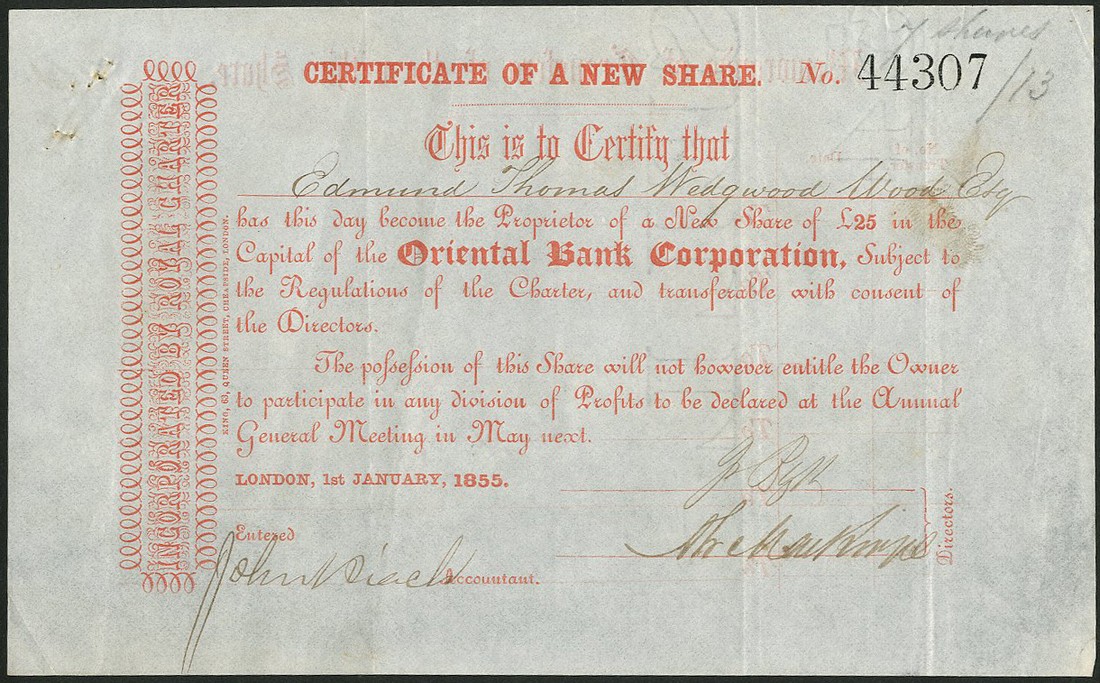 7 shares
/13
CERTIFICATE OF A NEW SHARE. No. 44307
This is to Certify that
Edmund Thomas Wedgwood Wood Esq
has this day become the Proprietor of a New Share of £25 in the
Capital of the Oriental Bank Corporation, Subject to
the Regulations of the Charter, and transferable with consent of
the Directors.
The possession of this Share will not however entitle the Owner
to participate in any division of Profits to be declared at the Annual
General Meeting in May next.
LONDON, 1st JANUARY, 1855.
Directors.
Entered
John
Accountant.
INCORPORATED BY ROYAL CHARTER
KING, 63, QUEEN STREET, CHEAPSIDE, LONDON.